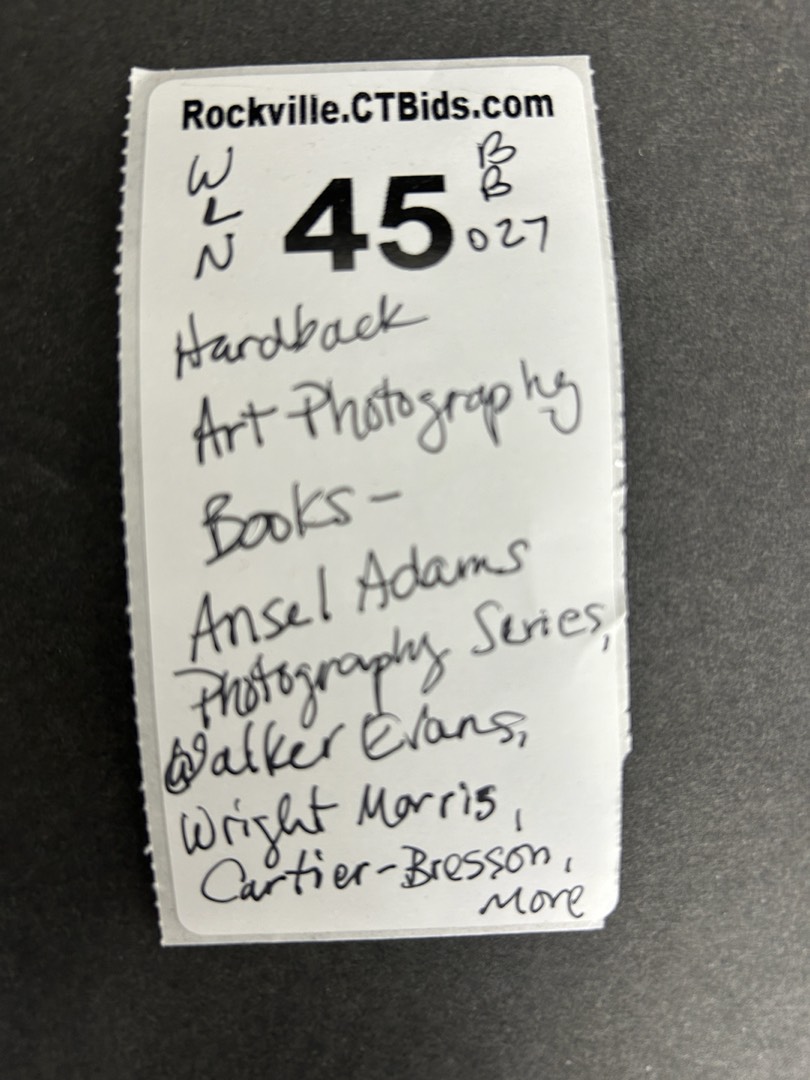 Rockville.CTBids.com
W
L
N
45
B
B
027
Hardback
Art Photography
Books-
Ansel Adams
Photography Series,
Walker Evans,
Wright Morris,
Cartier-Bresson,
More